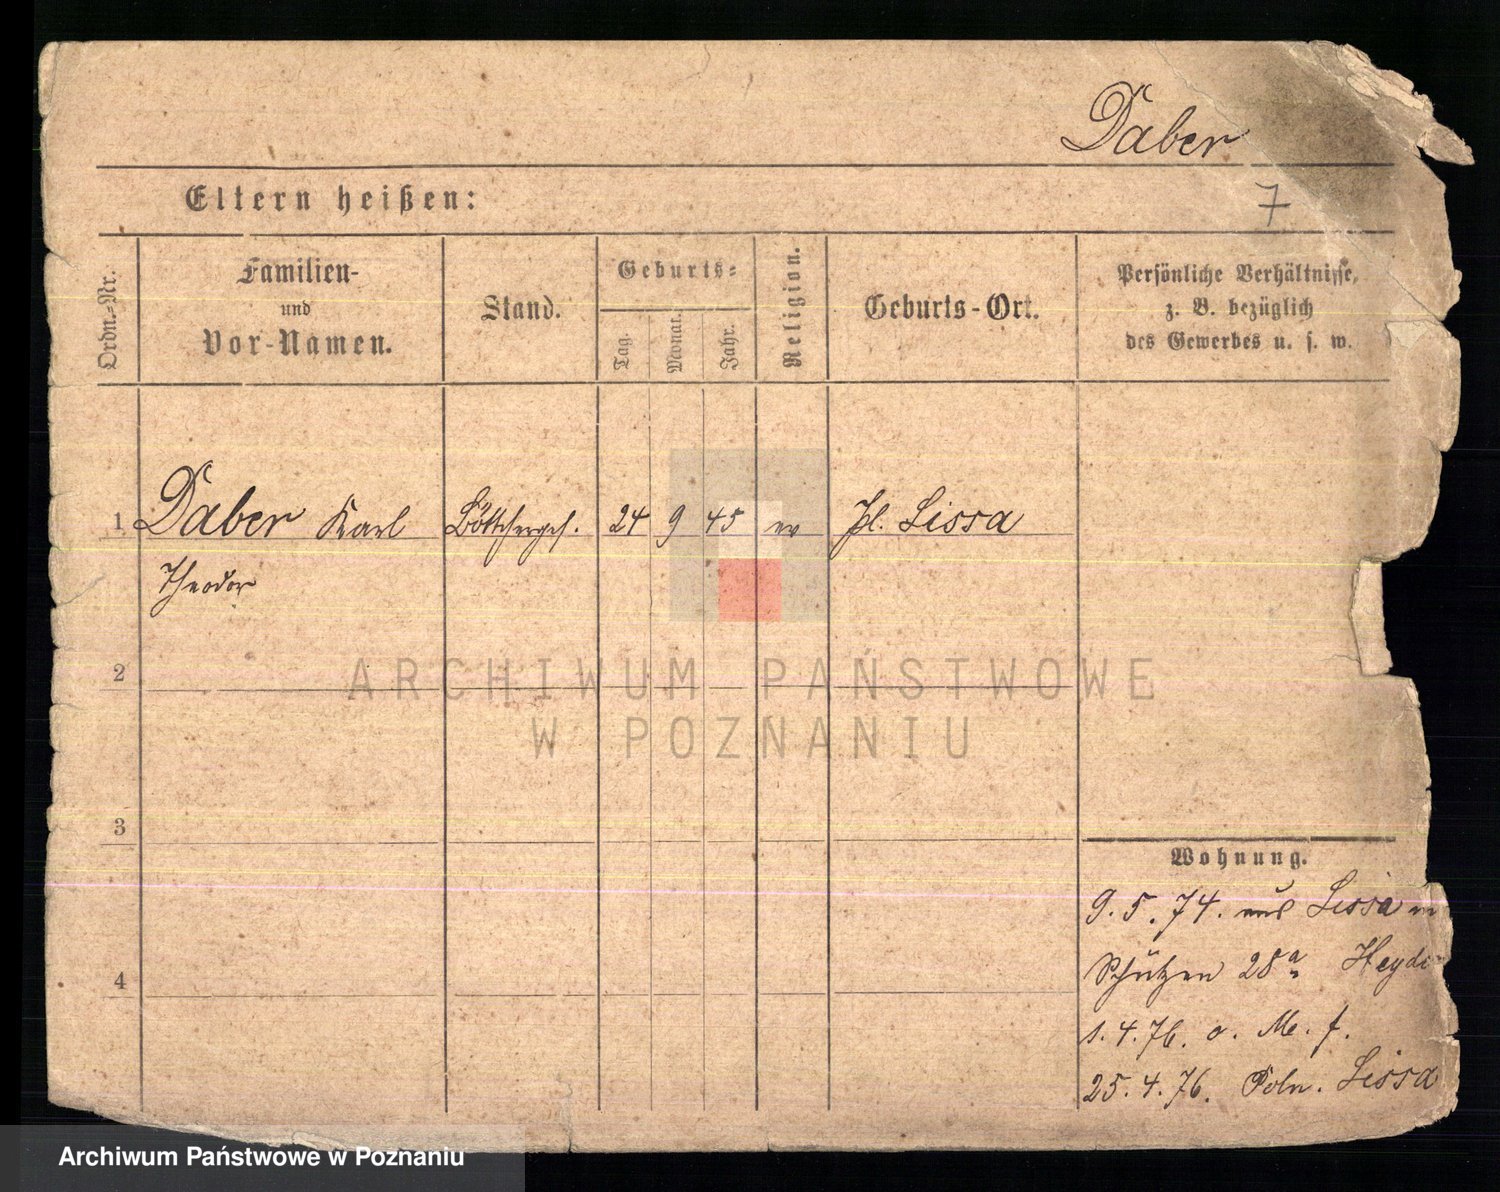 Daber
7
Eltern heißen:
Ordn.-Nr.
Familien-
und
Vor-Namen.
Stand.
Geburts-
Tag.
Monat.
Jahr.
Religion.
Geburts-Ort.
Persönliche Verhältnisse,
z. B. bezüglich
des Gewerbes u. s. w.
1 Daber Karl Böttcherges. 24 9 45 ev Pl. Lissa
Theodor
2
ARCHIWUM PAŃSTWOWE
W POZNANIU
3
4
Wohnung.
9.5.74. aus Lissa in
Schützen 28a Heyd
1.4.76. o. M. f.
25.4.76. Poln. Lissa
Archiwum Państwowe w Poznaniu